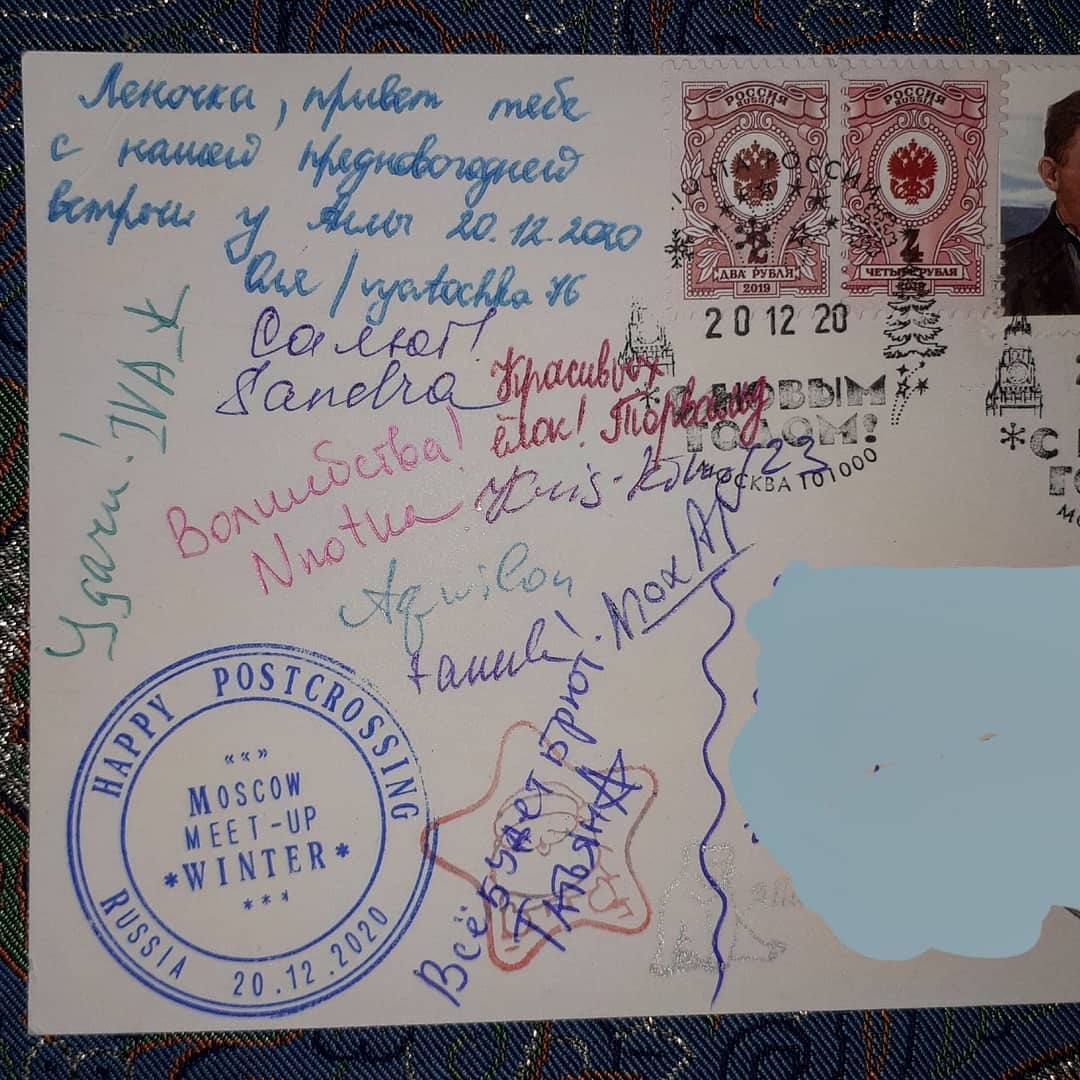 Леночка, привет тебе
с нашей предновогодней
встречи у Аллы 20.12.2020
Оля / vyatochka 76
Салют!
Sandra
Красивых
ёлок! Торвальд
Волшебства!
Nnotua
Удачи! IVA
Aquilon
Всё будет брют!
Татьяна
РОССИЯ
RUSSIA
2
ДВА РУБЛЯ
2019
РОССИЯ
RUSSIA
4
ЧЕТЫРЕ РУБЛЯ
2019
ПОЧТА РОССИИ
20 12 20
С НОВЫМ
ГОДОМ!
МОСКВА 101000
С
HAPPY POSTCROSSING
MOSCOW
MEET-UP
*WINTER*
***
RUSSIA 20.12.2020